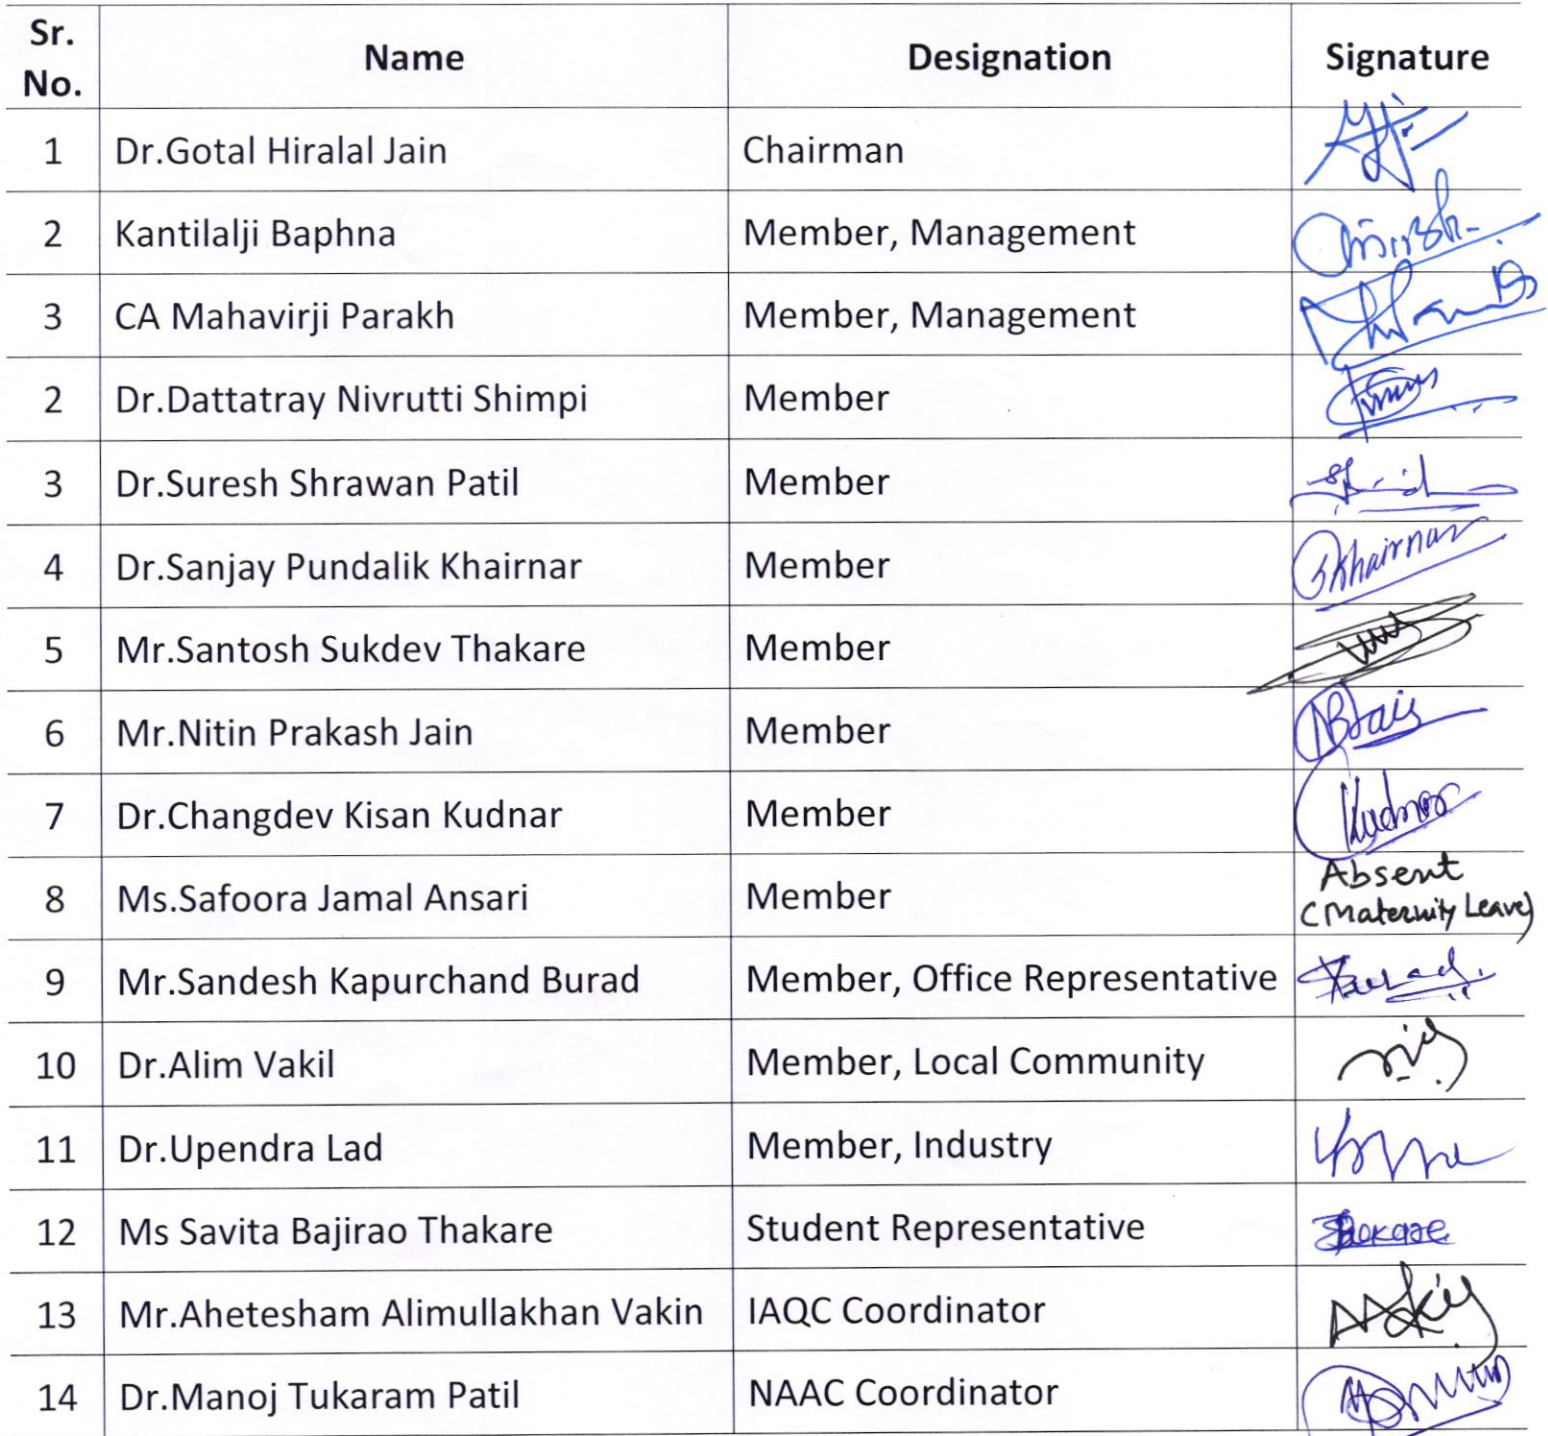 Sr. No. Name Designation Signature
1 Dr.Gotal Hiralal Jain Chairman
2 Kantilalji Baphna Member, Management
3 CA Mahavirji Parakh Member, Management
2 Dr.Dattatray Nivrutti Shimpi Member
3 Dr.Suresh Shrawan Patil Member
4 Dr.Sanjay Pundalik Khairnar Member Khairnar
5 Mr.Santosh Sukdev Thakare Member
6 Mr.Nitin Prakash Jain Member
7 Dr.Changdev Kisan Kudnar Member Kudnar
8 Ms.Safoora Jamal Ansari Member Absent
(Maternity Leave)
9 Mr.Sandesh Kapurchand Burad Member, Office Representative
10 Dr.Alim Vakil Member, Local Community
11 Dr.Upendra Lad Member, Industry
12 Ms Savita Bajirao Thakare Student Representative
13 Mr.Ahetesham Alimullakhan Vakin IAQC Coordinator
14 Dr.Manoj Tukaram Patil NAAC Coordinator